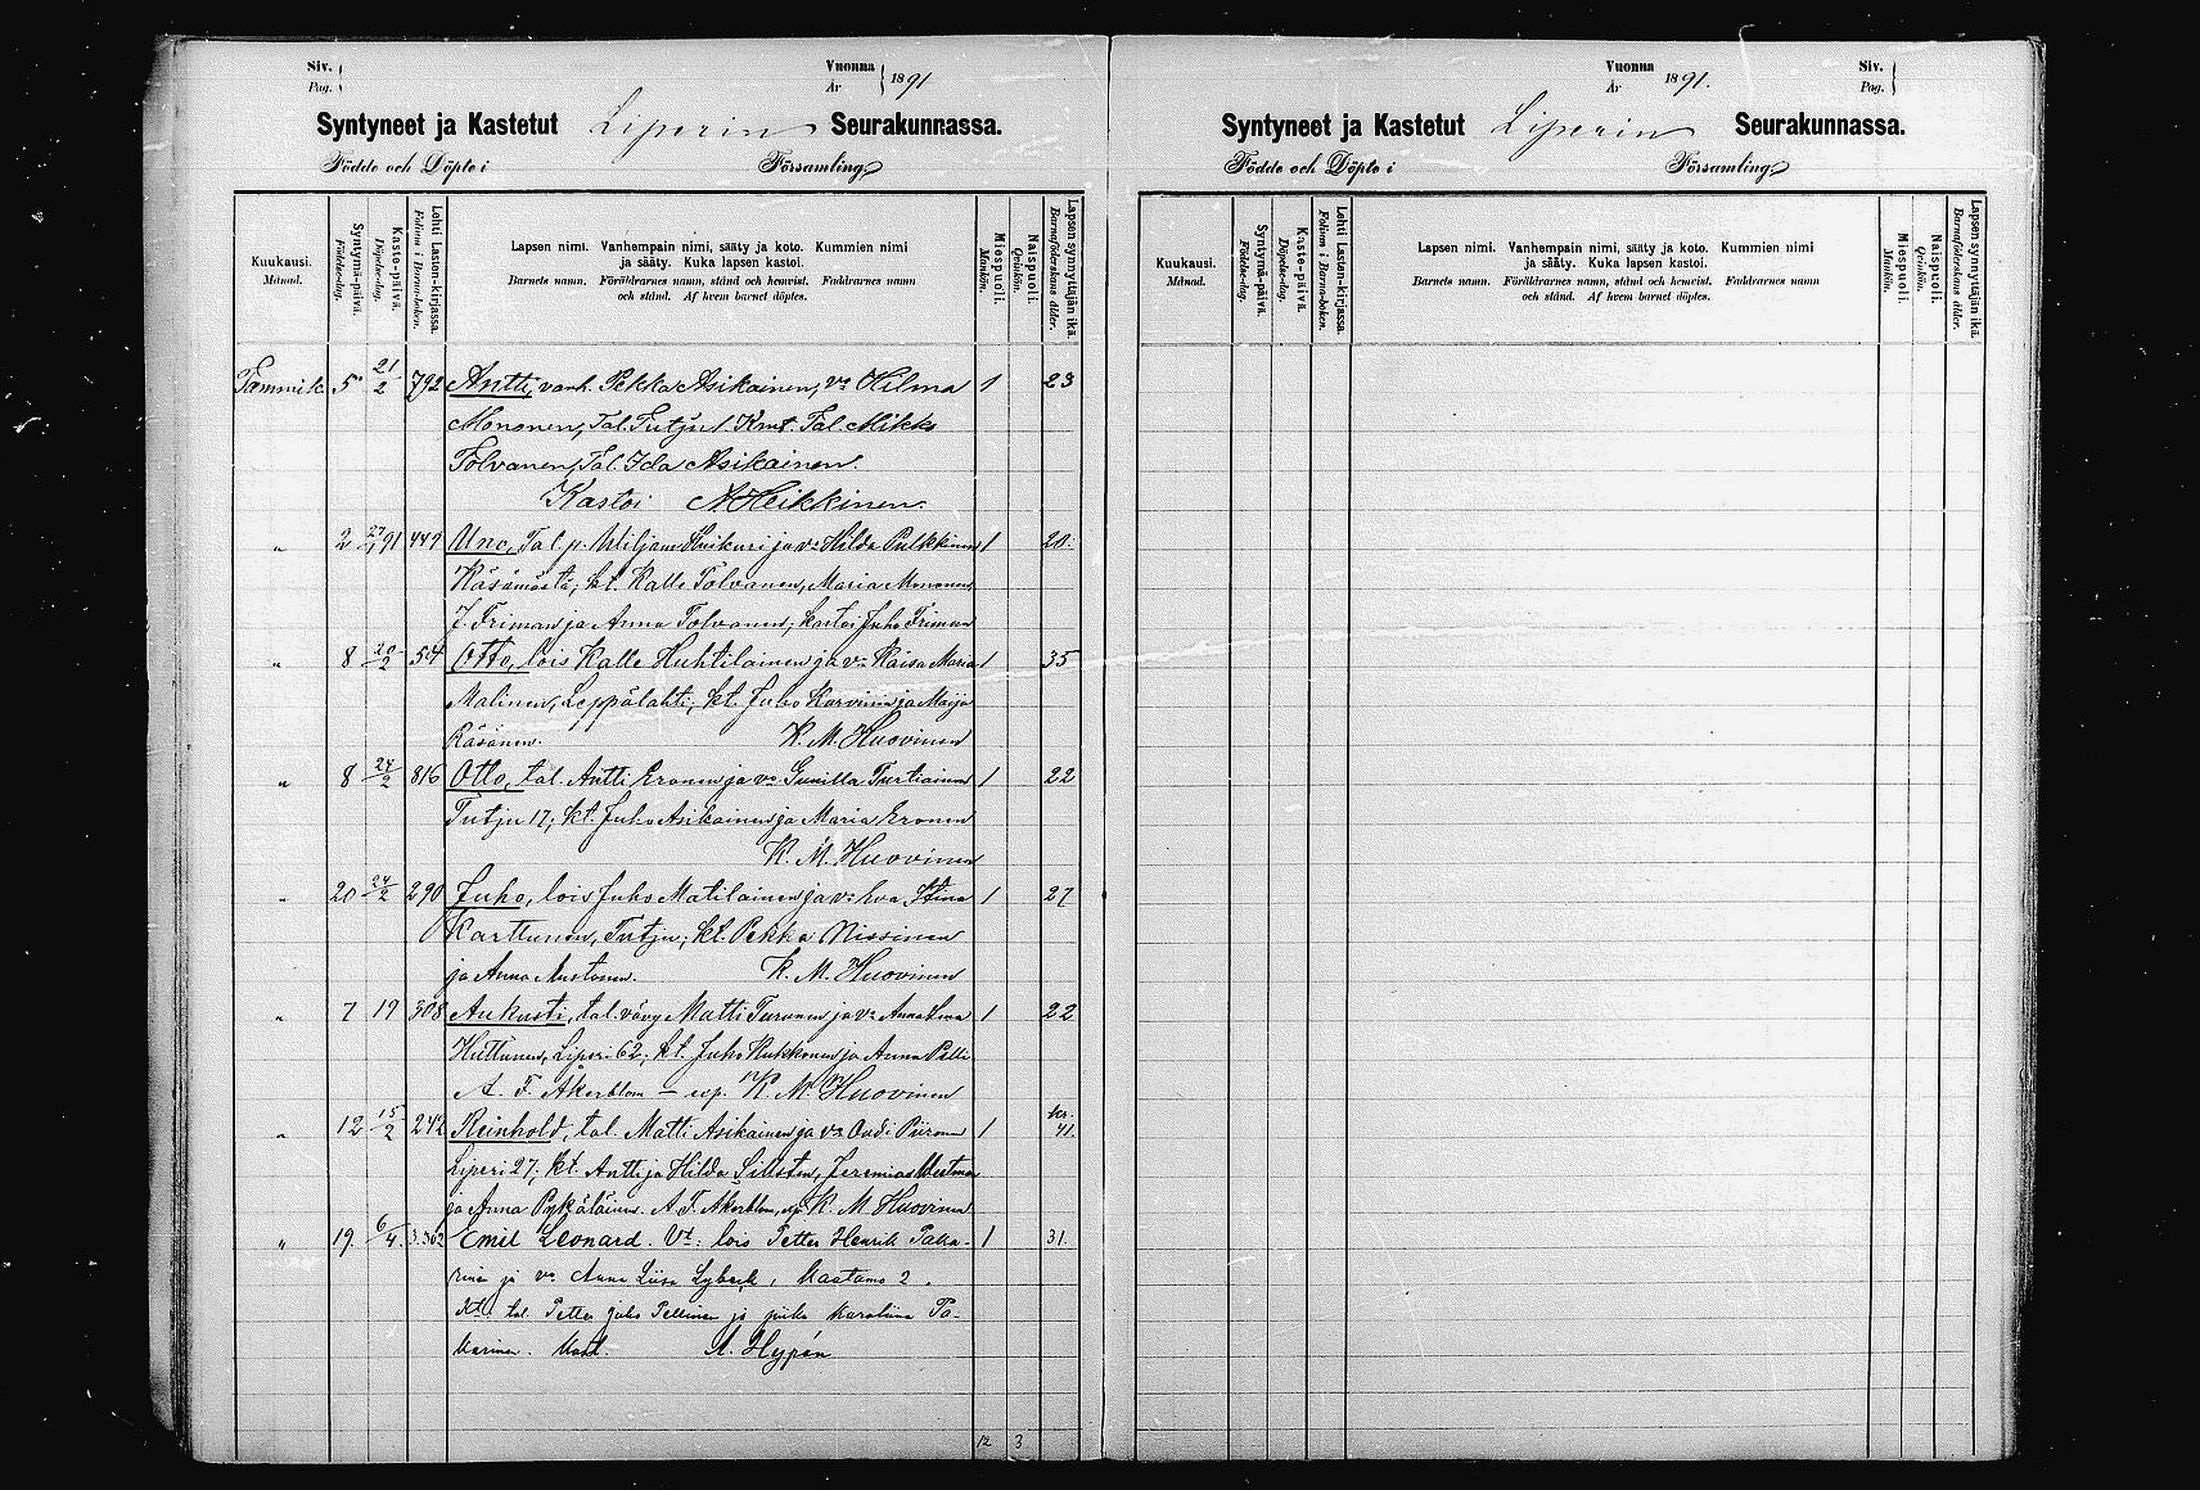 Siv.
Pag.
Vuonna
År
1891
Syntyneet ja Kastetut Liperin Seurakunnassa.
Födde och Döpte i Församling.
Kuukausi.
Månad.
Syntymä-päivä.
Födelse-dag.
Kasto-päivä.
Döpelse-dag.
Lehti Lasten-kirjassa.
Folium i Barna-boken.
Lapsen nimi. Vanhempain nimi, sääty ja koto. Kummien nimi
ja sääty. Kuka lapsen kastoi.
Barnets namn. Föräldrarnes namn, stånd och hemvist. Faddrarnes namn
och stånd. Af hvem barnet döptes.
Miespuoli.
Mankön.
Naispuoli.
Qvinkön.
Lapsen synnyttäjän ikä.
Barnaföderskans ålder.
Tammik. 5 21/2 792 Antti, vanh. Pekka Asikainen, vo Hilma 1 23
Mononen, Tal. Tutju 1. Kmt. Tal. Mikko
Tolvanen, Tal. Ida Asikainen.
Kastoi A. Heikkinen.
" 2 91 449 Uno, Tal. p. Wiljam Huikuri ja vo Hilda Pulkkinen 1 20
Käsämästä; kt. Kalle Tolvanen, Maria Mononen,
J. Friman ja Anna Tolvanen; kastoi Juho Friman
" 8 20/2 504 Otto, lois Kalle Huhtilainen ja vo Kaisa Maria 1 35
Malinen, Leppälahti; kt. Juho Karvinen ja Maija
Räsänen. K. M. Huovinen
" 8 24/2 816 Otto, tal. Antti Eronen ja vo Gunilla Turtiainen 1 22
Tutju 17; kt. Juho Asikainen ja Maria Eronen
K. M. Huovinen
" 20 24/2 290 Juho, lois Juho Matilainen ja vo Eva Stina 1 27
Karttunen, Tutju; kt. Pekka Nissinen
ja Anna Mustonen. K. M. Huovinen
" 7 19 308 Aukusti, tal. vävy Matti Turunen ja vo Anna 1 22
Huttunen, Liperi 62; kt. Juho Kukkonen ja Anna Pelli
A. F. Åkerblom – K. M. Huovinen
" 12 15/2 242 Reinhold, tal. Matti Asikainen ja vo Audi Piironen 1 41.
Liperi 27; kt. Antti ja Hilda Sillsten, Jeremias Westman
ja Anna Pykäläinen. A. F. Åkerblom, K. M. Huovinen
" 19. 6/4. Emil Leonard. Vt: lois Petter Henrik Paka- 1 31.
rinen ja vo Anna Liisa Lybeck, Kaatamo 2.
Kt: tal. Petter Juho Pellinen ja piika Karoliina Pa-
karinen. Kast. A. Hypén
12 3
Vuonna
År
1891.
Siv.
Pag.
Syntyneet ja Kastetut Liperin Seurakunnassa.
Födde och Döpte i Församling.
Kuukausi.
Månad.
Syntymä-päivä.
Födelse-dag.
Kasto-päivä.
Döpelse-dag.
Lehti Lasten-kirjassa.
Folium i Barna-boken.
Lapsen nimi. Vanhempain nimi, sääty ja koto. Kummien nimi
ja sääty. Kuka lapsen kastoi.
Barnets namn. Föräldrarnes namn, stånd och hemvist. Faddrarnes namn
och stånd. Af hvem barnet döptes.
Miespuoli.
Mankön.
Naispuoli.
Qvinkön.
Lapsen synnyttäjän ikä.
Barnaföderskans ålder.